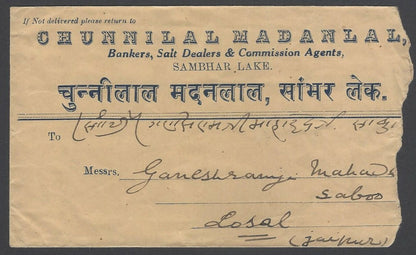 If Not delivered please return to
CHUNNILAL MADANLAL,
Bankers, Salt Dealers & Commission Agents,
SAMBHAR LAKE.
चुन्नीलाल मदनलाल, सांभर लेक.
To
Messrs. Ganeshramji Mahade
Saboo
Losal
(Jaipur)